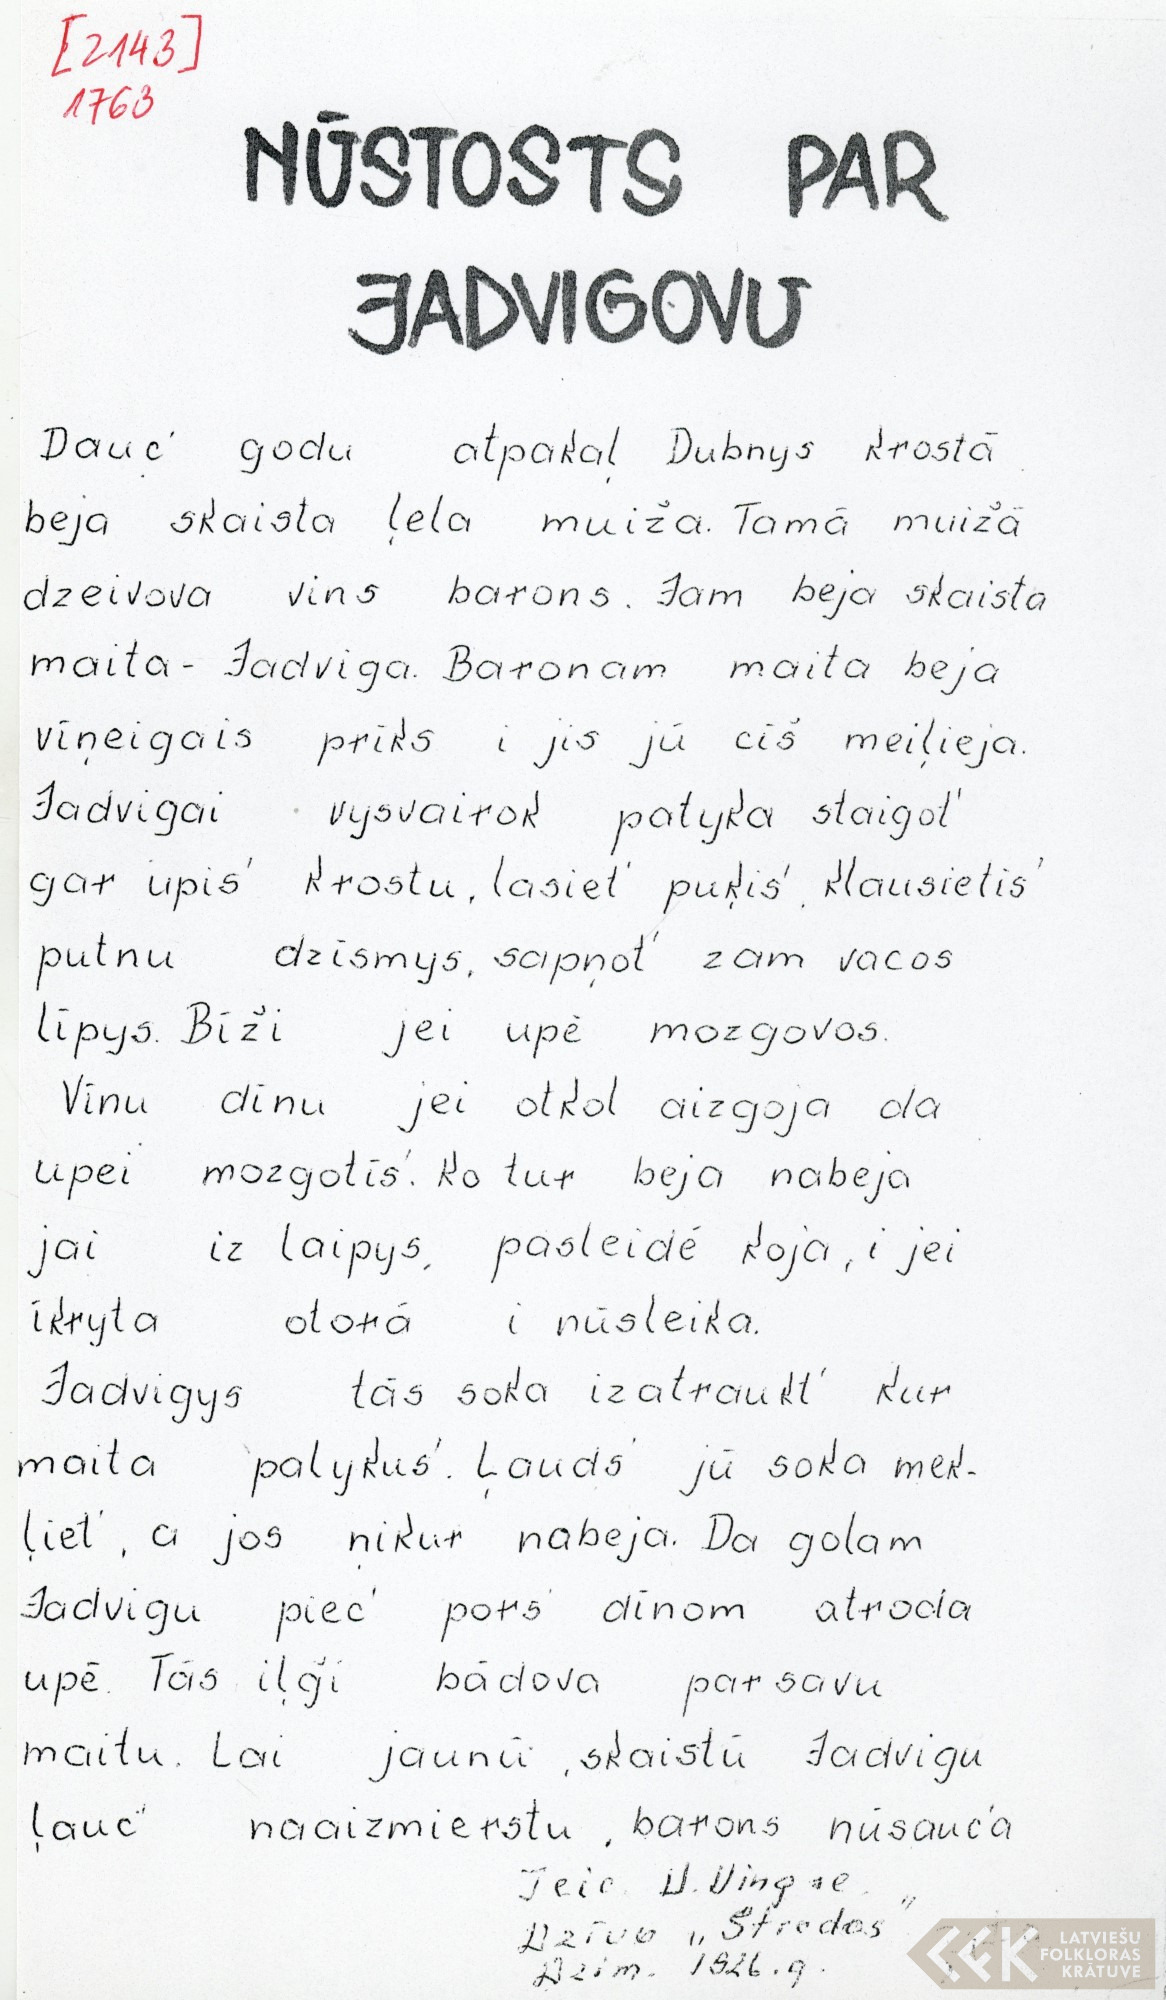 [2143]
1763
NŪSTOSTS PAR
JADVIGOVU
Dauč godu atpakaļ Dubnys krostā
beja skaista ļela muiža. Tamā muižā
dzeivova vīns barons. Jam beja skaista
maita - Jadviga. Baronam maita beja
vīņeigais prīks i jis jū cīš meiļieja.
Jadvigai vysvairok patyka staigot'
gar upis' krostu, lasiet' puķis', klausietīs'
putnu dzīsmys, sapņot' zam vacos
līpys. Bīži jei upē mozgovos.
Vīnu dīnu jei otkol aizgoja da
upei mozgotīs'. Ko tur beja nabeja
jai iz laipys, pasleidē koja, i jei
īkryta otorā i nūsleika.
Jadvigys tās soka izatraukt' kur
maita palykus'. Ļauds' jū soka mek-
ļiet', a jos ņikur nabeja. Da golam
Jadvigu piec' pors' dīnom atroda
upē. Tās iļģi bādova par savu
maitu. Lai jaunū, skaistū Jadvigu
ļauc' naaizmierstu, barons nūsauc'a
Teic. V. Vingre.
Dzīvo „Strodos"
Dzim. 1926. g.
LATVIEŠU
FOLKLORAS
KRĀTUVE